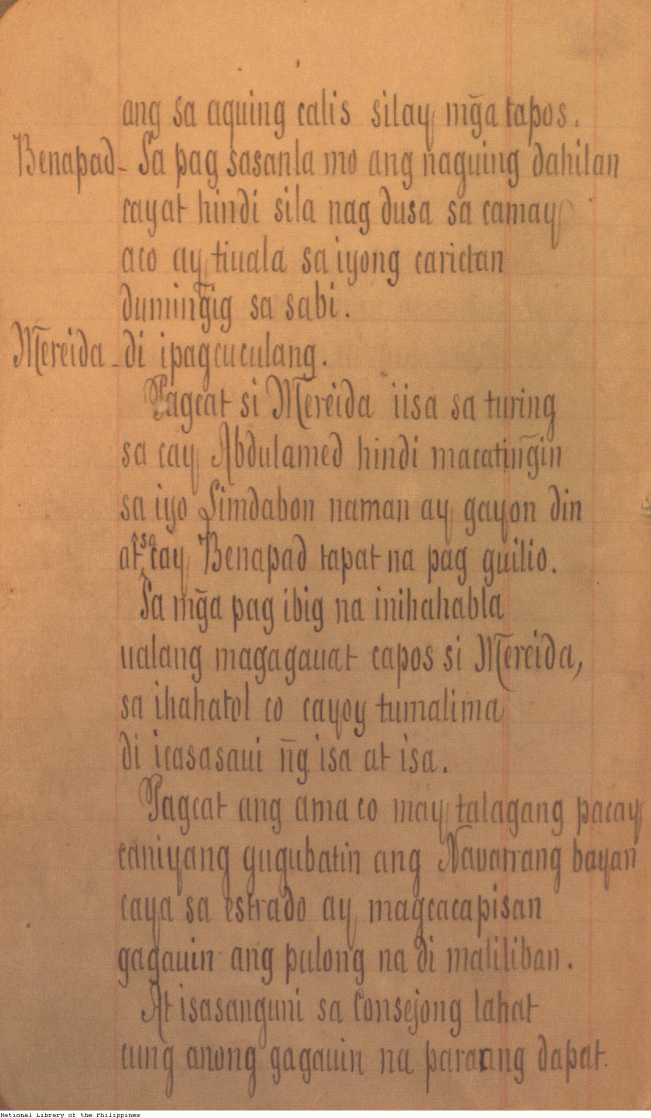 ang sa aquing calis silay mg̃a tapos.
Benapad - Sa pag sasanla mo ang naguing dahilan
cayat hindi sila nag dusa sa camay
aco ay tiuala sa iyong carictan
duming̃ig sa sabi.
Mereida - di ipagcuculang.
Pagcat si Mereida iisa sa turing
sa cay Abdulamed hindi macating̃in
sa iyo Limdabon naman ay gayon din
at sa cay Benapad tapat na pag guilio.
Sa mg̃a pag ibig na inihahabla
ualang magagauat capos si Mereida,
sa ihahatol co cayoy tumalima
di icasasaui ng̃ isa at isa.
Pagcat ang ama co may talagang pacay
caniyang gugubatin ang Navarrang bayan
caya sa estrado ay magcacapisan
gagauin ang pulong na di maliliban.
At isasanguni sa Consejong lahat
cung anong gagauin na paraang dapat.
National Library of the Philippines